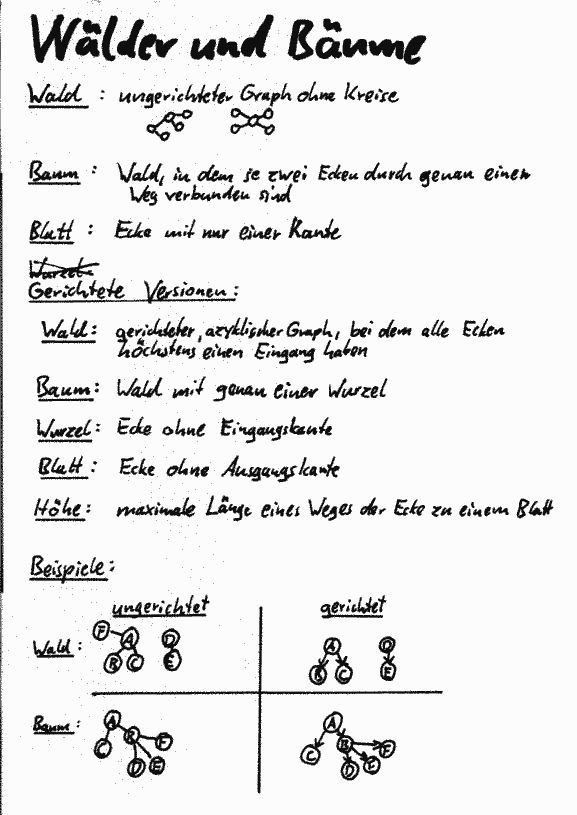 Wälder und Bäume
Wald : ungerichteter Graph ohne Kreise
Baum : Wald, in dem je zwei Ecken durch genau einen
Weg verbunden sind
Blatt : Ecke mit nur einer Kante
Wurzel:
Gerichtete Versionen:
Wald: gerichteter, azyklischer Graph, bei dem alle Ecken
höchstens einen Eingang haben
Baum: Wald mit genau einer Wurzel
Wurzel: Ecke ohne Eingangskante
Blatt: Ecke ohne Ausgangskante
Höhe: maximale Länge eines Weges der Ecke zu einem Blatt
Beispiele:
ungerichtet gerichtet
F A D A D
Wald:
B C E B C E
Baum: A A
C B F C B F
D E D E